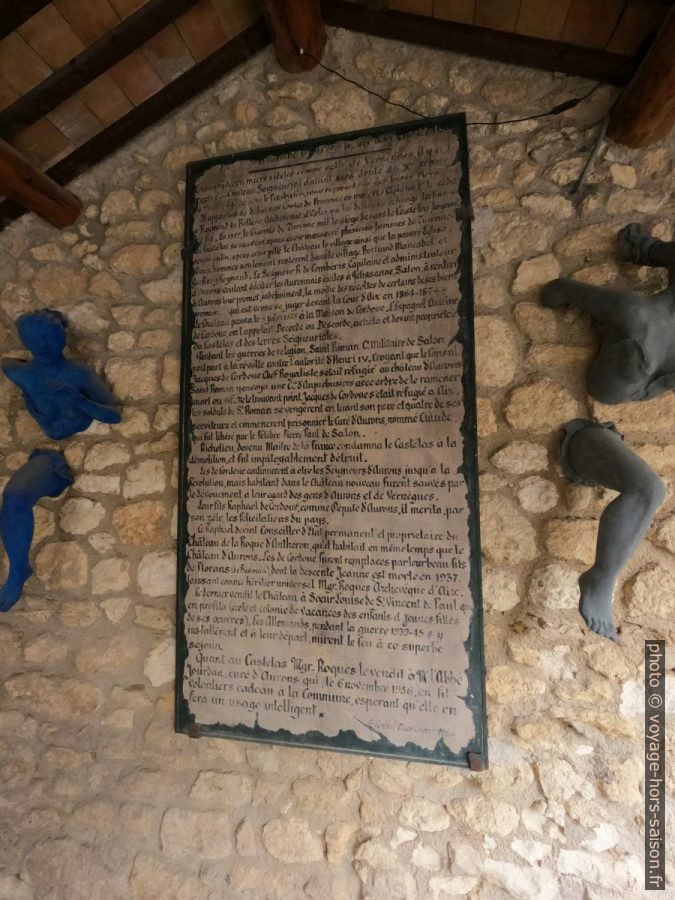 premiers siècles comme celle de Vernègues il y
Château Seigneurial datant sans doute du Xe
Il appartint au début aux Comtes de Provence, en
Raymond de Bollène, Archevêque d'Arles qui lui
le Vicomte de Turenne mit le siège devant le Castelas
Castelas se sauvèrent après avoir massacré plusieurs hommes de Turenne
après avoir pillé le Château le village ainsi que la pauvre Eglise
Deux hommes seulement restèrent dans le village, Bertrand
Geoffroy Reynaud. Le Seigneur R. de Comberis, Capitaine et administrateur
d'Aurons voulant décider les Auronnais exilés à Pélissanne, Salon, à rentrer
à Aurons leur promet indéfiniment, la moitié des récoltes de certains de ses biens
qui est venue se juger devant la Cour d'Aix en 1864-1874
le Château passa le 9 juin à la Maison de Cordoue. L'Espagnol Antoine
de Cordoue, on l'appelait Decorde ou Descorde, acheta et devint propriétaire
du Castelas et des terres Seigneuriales.
Pendant les guerres de religion, Saint Roman C. Militaire de Salon,
prit part à la révolte contre l'autorité d'Henri IV. Croyant que le Consul
Jacques de Cordoue Chef Royaliste s'était réfugié au château d'Aurons
Saint Roman y envoya une Cie d'Arquebusiers avec ordre de le ramener
mort ou vif. Ne le trouvant point, Jacques de Cordoue s'était réfugié à Aix,
les soldats de St. Roman se vengèrent en tuant son père et quatre de ses
serviteurs et emmenèrent prisonnier le Curé d'Aurons, nommé Claude
qui fut libéré par le félibre Pierre Paul de Salon.
Richelieu, devenu Maître de la France condamna le Castelas à la
démolition, et fut impitoyablement détruit.
Les de Cordoue continuèrent à être les Seigneurs d'Aurons jusqu'à la
Révolution, mais habitant dans le Château nouveau furent sauvés par
le dévouement à leur égard des gens d'Aurons et de Vernègues.
Leur fils Raphael de Cordoue, comme Député d'Aurons, il mérita, par
son zèle, les félicitations du pays.
Ce Raphael devint Conseiller d'Etat permanent et propriétaire du
Château de la Roque d'Anthéron, qu'il habitait en même temps que le
Château d'Aurons. Les de Cordoue furent remplacés par leur beau fils
de Florans dont la descente Jeanne est morte en 1937.
laissant comme héritier universel Mgr. Roques Archevêque d'Aix.
Ce dernier vendit le Château à Soeur Louise de St. Vincent de Paul qui
en profita (école et colonie de vacances des enfants et jeunes filles
de ses œuvres). Les Allemands, pendant la guerre 1939-45 s'y
installèrent et à leur départ, mirent le feu à ce superbe
séjour.
Quant au Castelas Mgr. Roques le vendit à Mr l'Abbé
Jourdan, curé d'Aurons qui, le 6 novembre 1956, en fit
volontiers cadeau à la Commune, espérant qu'elle en
fera un usage intelligent.
Le Conseil Municipal
photo © voyage-hors-saison.fr